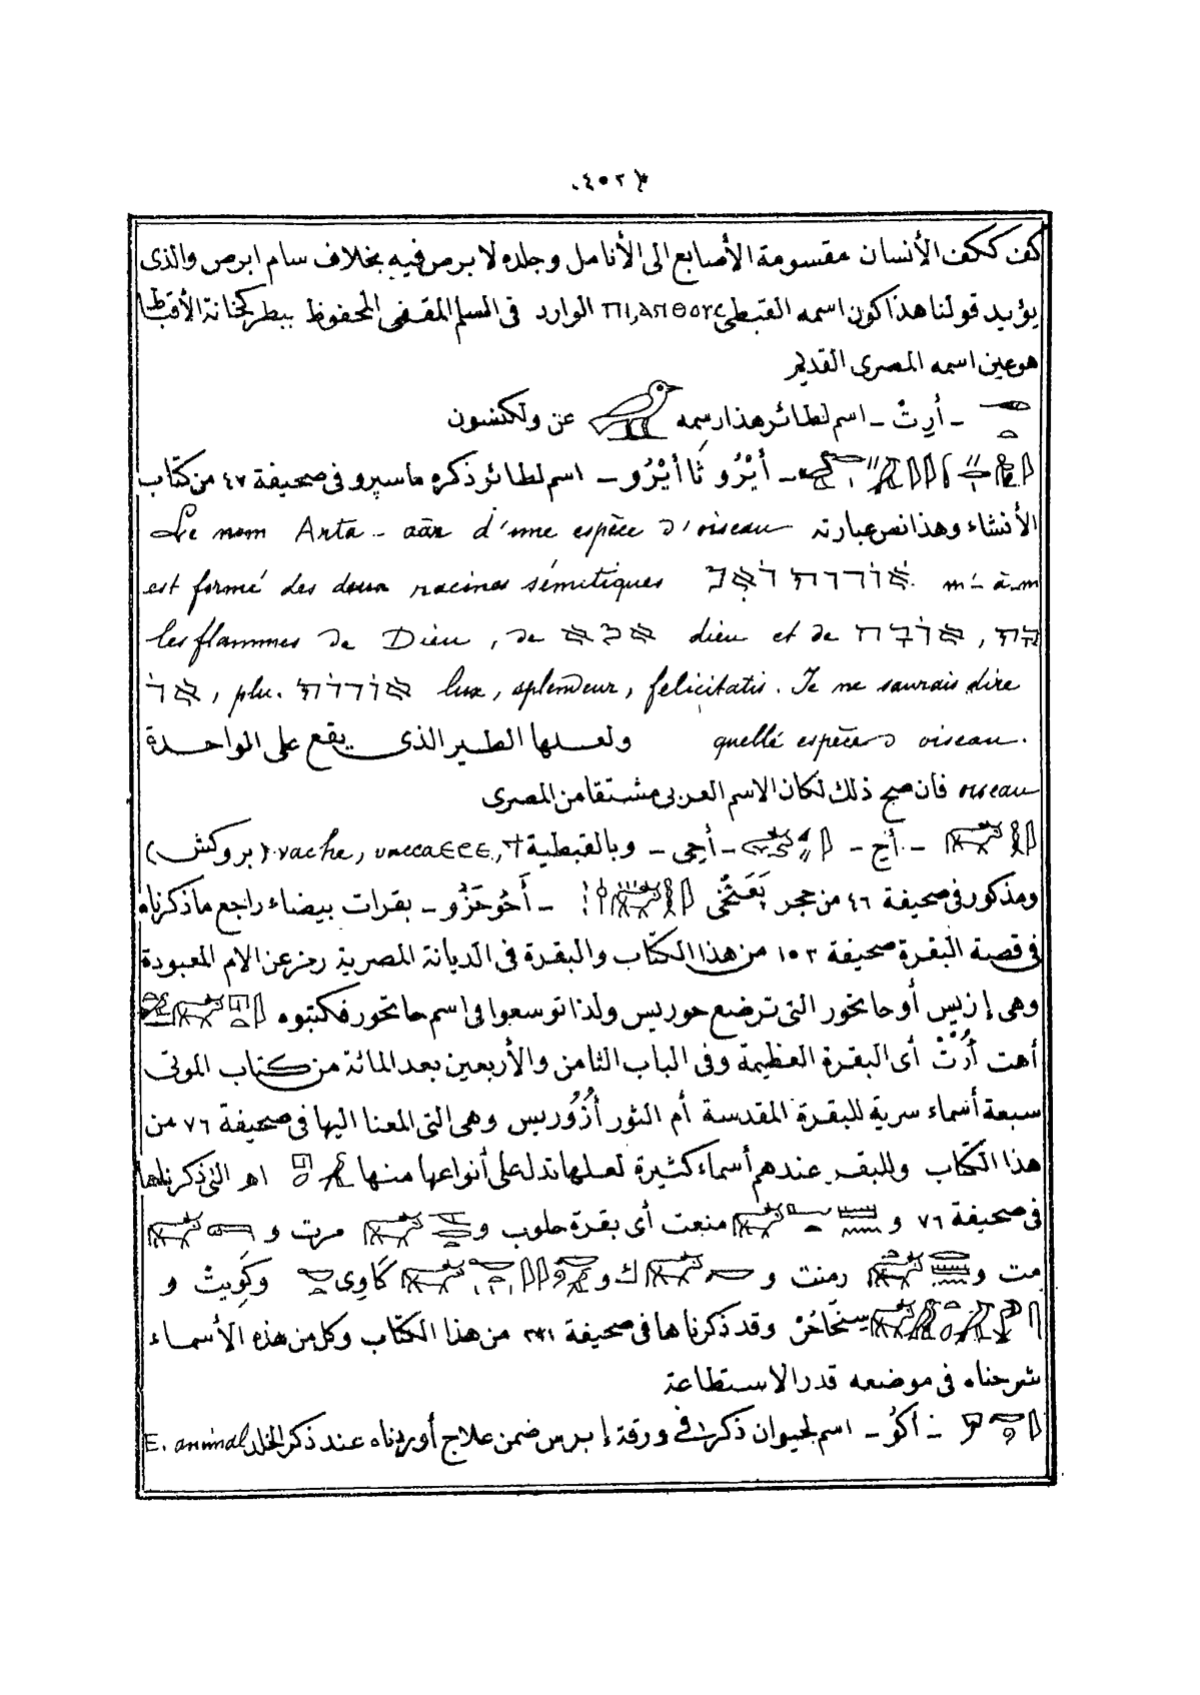 ٤٥٢
كف ككف الأنسان مقسومة الأصابع الى الأنامل وجلده لا برص فيه بخلاف سام ابرص والذى
يؤيد قولنا هذا كون اسمه القبطى الوارد فى السلم المقفى المحفوظ ببطركخانة الأقباط
هو عين اسمه المصرى القديم
ـ أرِتْ ـ اسم لطائر هذا رسمه عن ولكنسون
ـ أيْرُو ثَا أيْرُو ـ اسم لطائر ذكره ماسپرو فى صحيفة ٤٧ من كتاب
الأنشاء وهذا نص عبارته Le nom Arta - aār d'une espèce d'oiseau
est formé des deux racines sémitiques m-à-m
les flammes de Dieu, de dieu et de
, plu. lux, splendeur, felicitatis. Je ne saurais dire
quelle espèce d oiseau. ولعلها الطير الذى يقع على الواحدة
oiseau فان صح ذلك لكان الاسم العربى مشتقا من المصرى
ـ أح ـ ـ أحِى ـ وبالقبطية vache, vacca (بروكش)
ومذكور فى صحيفة ٤٦ من حجر ـ أَحُو حَزُو ـ بقرات بيضاء راجع ما ذكرناه
فى قصة البقرة صحيفة ١٥٣ من هذا الكتاب والبقرة فى الديانة المصرية رمز عن الام المعبودة
وهى إزيس أو حاتحور التى ترضع حوريس ولذا توسعوا فى اسم حاتحور فكتبوه
أهت أُرْتْ أى البقرة العظيمة وفى الباب الثامن والأربعين بعد المائة من كتاب الموتى
سبعة أسماء سرية للبقرة المقدسة أم الثور أزُوريس وهى التى المعنا اليها فى صحيفة ٧٦ من
هذا الكتاب وللبقر عندهم أسماء كثيرة لعلها تدل على أنواعها منها اهر التى ذكرناها
فى صحيفة ٧٦ و منعت أى بقرة حلوب و مرت و
مت و رمنت و ك و كَاوِى وكَوِيتْ و
وقد ذكرناها فى صحيفة من هذا الكتاب وكل من هذه الأسماء
شرحناه فى موضعه قدر الاستطاعة
ـ أكُو ـ اسم لحيوان ذكر فى ورقة إبرس ضمن علاج أوردناه عند ذكر الخلد E. animal